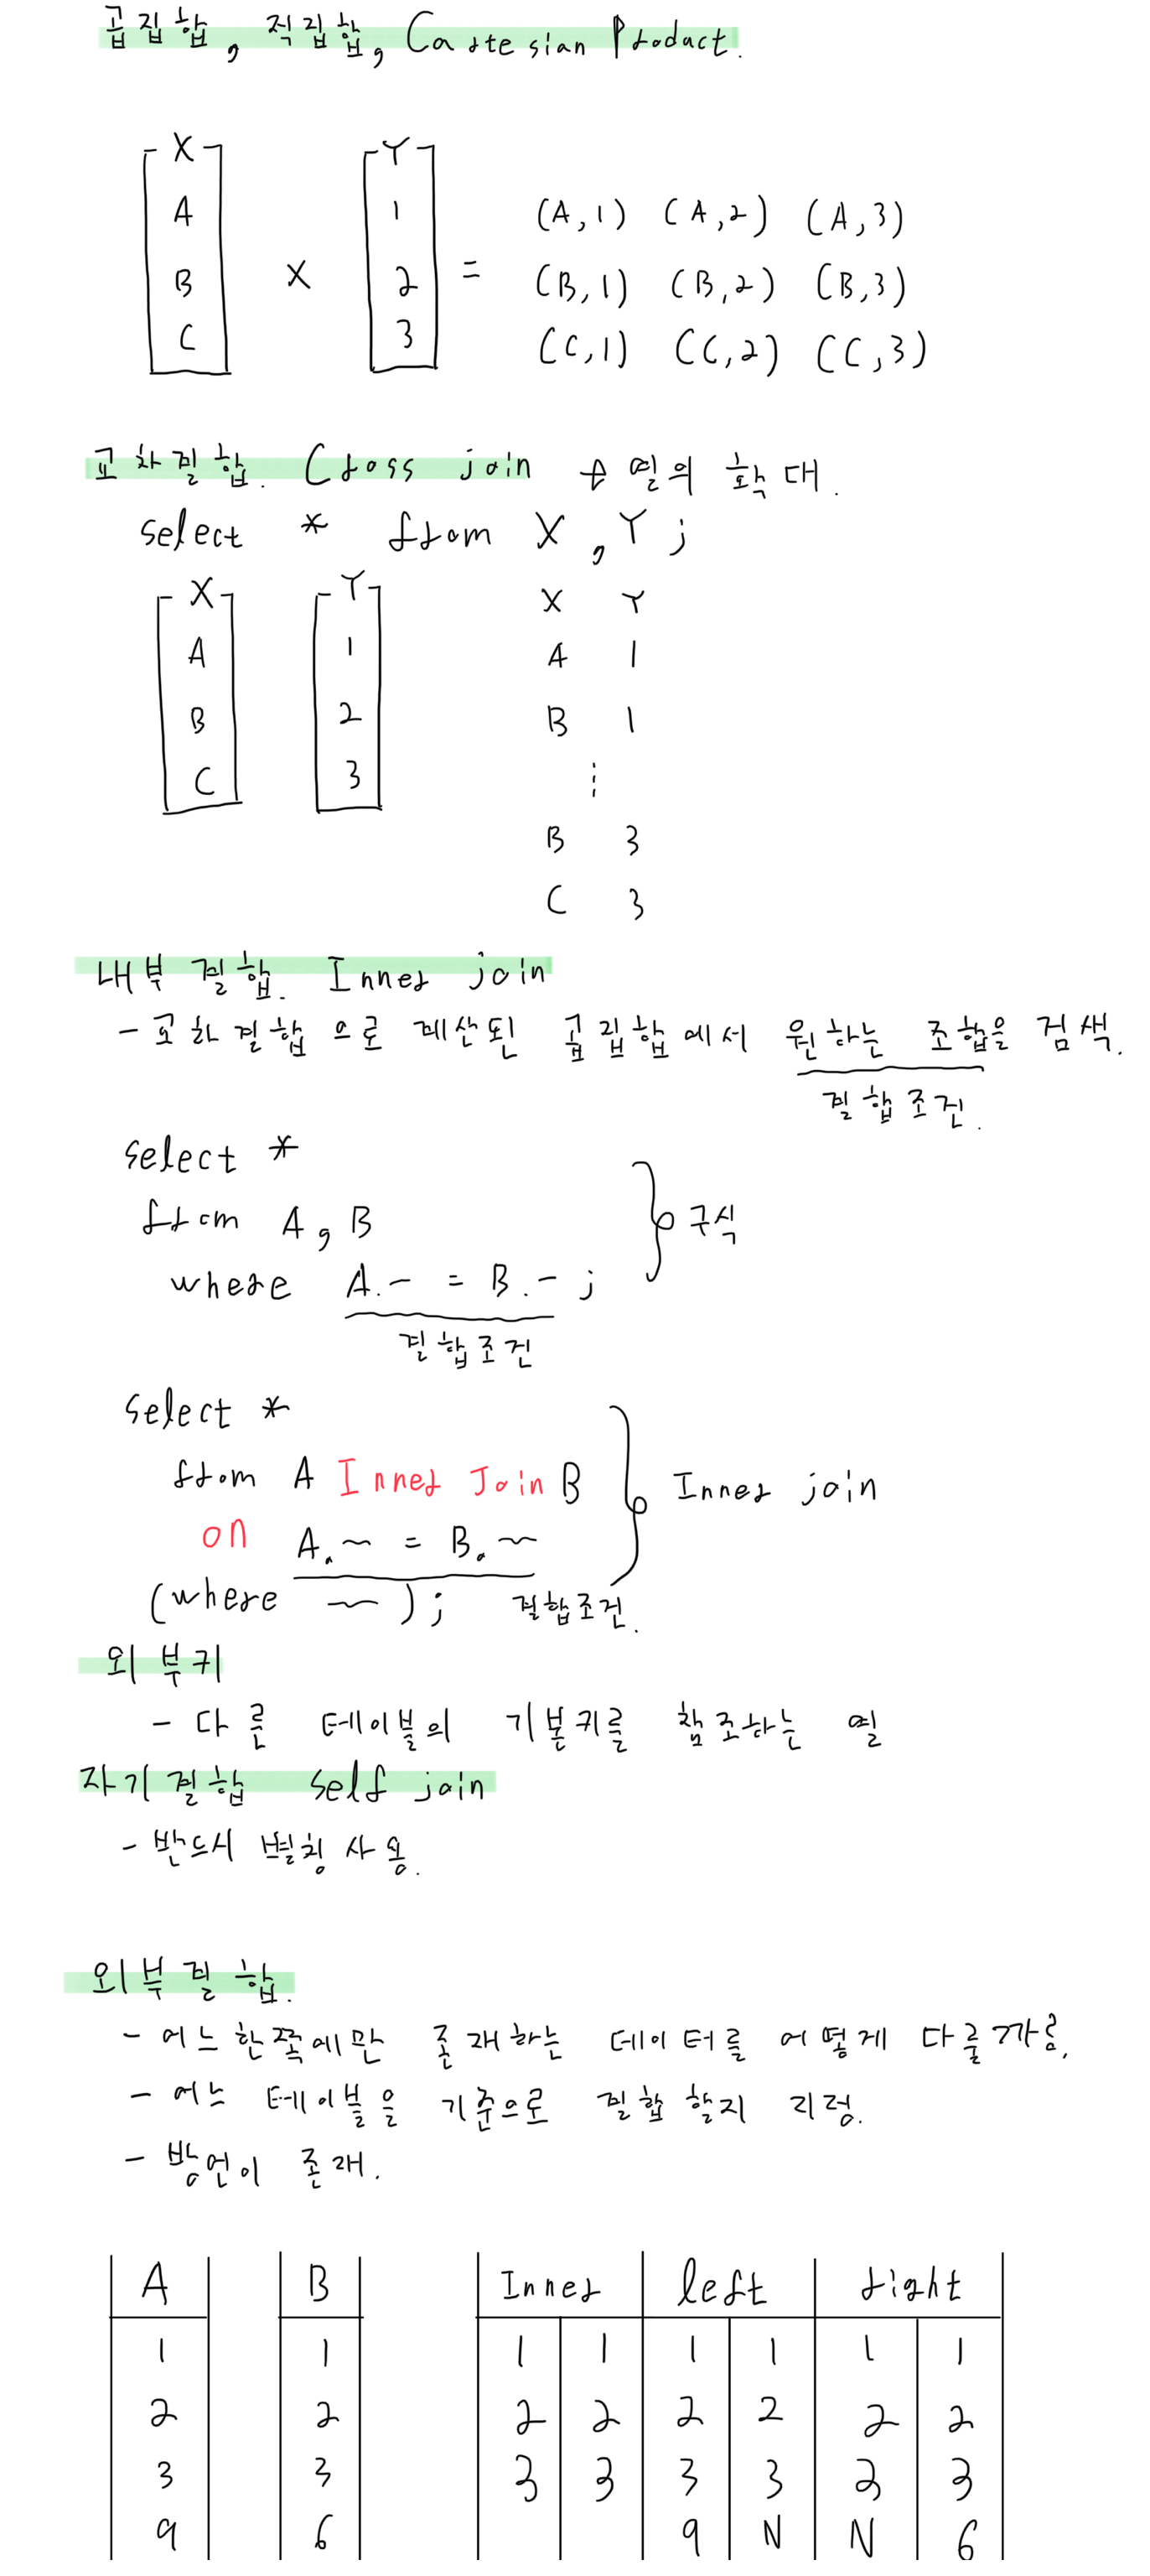 곱집합, 적집합, Cartesian Product.
X Y
A 1 (A,1) (A,2) (A,3)
B X 2 = (B,1) (B,2) (B,3)
C 3 (C,1) (C,2) (C,3)
교차결합. Cross join 열의 확대.
select * from X, Y;
X Y X Y
A 1 A 1
B 2 B 1
C 3 ⋮
B 3
C 3
내부 결합. Inner join
- 교차 결합으로 계산된 곱집합에서 원하는 조합을 검색.
결합조건.
select *
from A, B 구식
where A.~ = B.~;
결합조건
select *
from A Inner Join B Inner join
on A.~ = B.~
(where ~); 결합조건.
외부키
- 다른 테이블의 기본키를 참조하는 열
자기결합 self join
- 반드시 별칭 사용.
외부결합.
- 어느 한쪽에만 존재하는 데이터를 어떻게 다룰까
- 어느 테이블을 기준으로 결합할지
- 방언이 존재.
A B Inner left right
1 1 1 1 1 1 1 1
2 2 2 2 2 2 2 2
3 3 3 3 3 3 3 3
9 6 9 N N 6